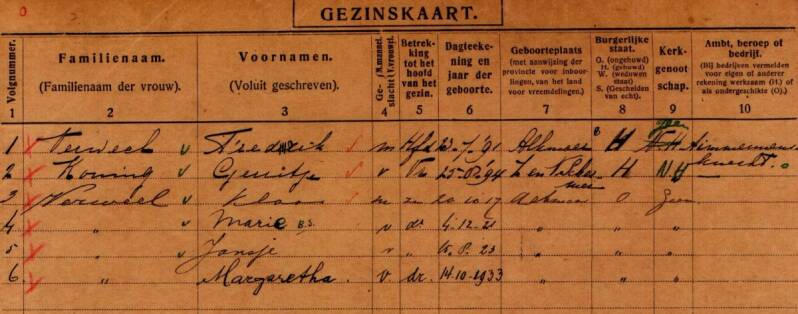 GEZINSKAART.
Volgnummer. Familienaam. (Familienaam der vrouw). Voornamen. (Voluit geschreven). Geslacht (M. mannel. V. vrouwel.) Betrekking tot het hoofd van het gezin. Dagteekening en jaar der geboorte. Geboorteplaats (met aanwijzing der provincie voor inboorlingen, van het land voor vreemdelingen.) Burgerlijke staat. O. (ongehuwd) H. (gehuwd) W. (weduwen staat) S. (Gescheiden van echt). Kerkgenootschap. Ambt, beroep of bedrijf. (Bij bedrijven vermelden voor eigen of anderer rekening werkzaam (H.) of als ondergeschikte (O.))
1 2 3 4 5 6 7 8 9 10
1 Verweel Fredrik m Hfd 23-7-'91 Alkmaar H N.H. Timmermans
2 Koning Geertje v Vr 25-8-'94 H N H knecht.
3 Verweel Klaas m zn 20 10 17 Alkmaar O Geen
4 „ Marie B.S. v dr 4-12-21 „ „ „
5 „ Jansje v „ 23 „ „ „
6. „ Margaretha. v. dr. 14-10-1933 „ „ „